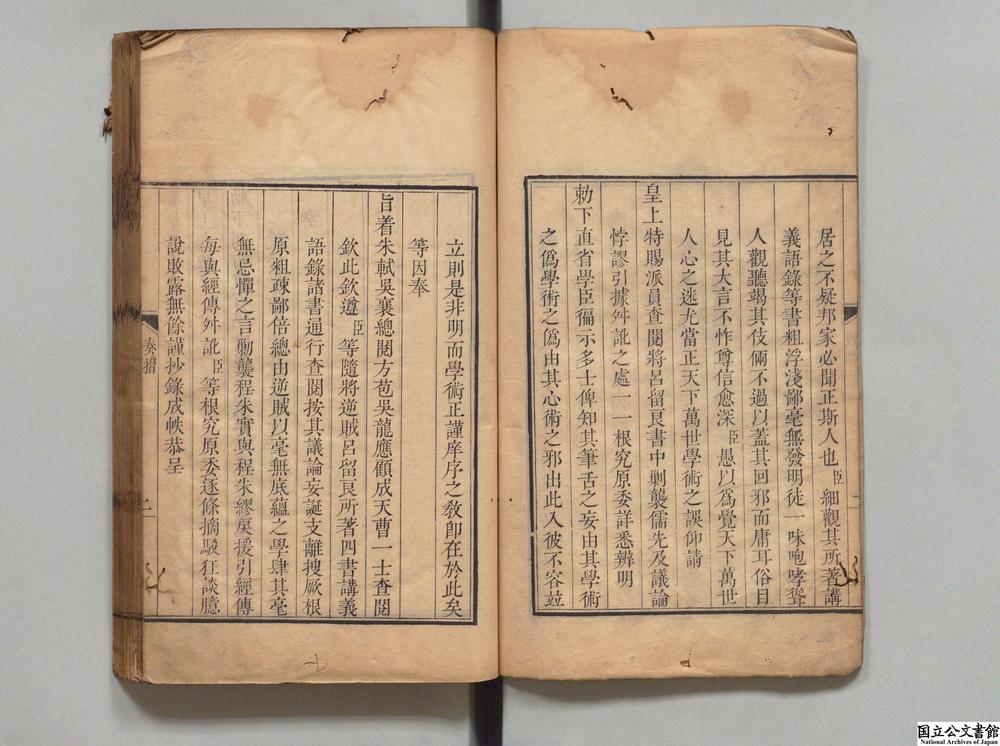 居之不疑邦家必聞正斯人也臣細觀其所著講
義語錄等書粗浮淺鄙毫無發明徒一味咆哮聳
人觀聽竭其伎倆不過以蓋其回邪而庸耳俗目
見其大言不怍尊信愈深臣愚以爲覺天下萬世
人心之迷尤當正天下萬世學術之誤仰請
皇上特賜派員查閱將呂留良書中剿襲儒先及議論
悖謬引據舛訛之處一一根究原委詳悉辨明
勅下直省學臣徧示多士俾知其筆舌之妄由其學術
之僞學術之僞由其心術之邪出此入彼不容並
立則是非明而學術正謹庠序之教卽在於此矣
等因奉
旨着朱軾吳襄總閱方苞吳龍應顧成天曹一士查閱
欽此欽遵臣等隨將逆賊呂留良所著四書講義
語錄諸書通行查閱按其議論妄誕支離搜厥根
原粗疎鄙倍總由逆賊以毫無底蘊之學肆其毫
無忌憚之言勦襲程朱實與程朱繆戾援引經傳
每與經傳舛訛臣等根究原委逐條摘駁狂談臆
說敗露無餘謹抄錄成帙恭呈
奏摺
二
国立公文書館
National Archives of Japan